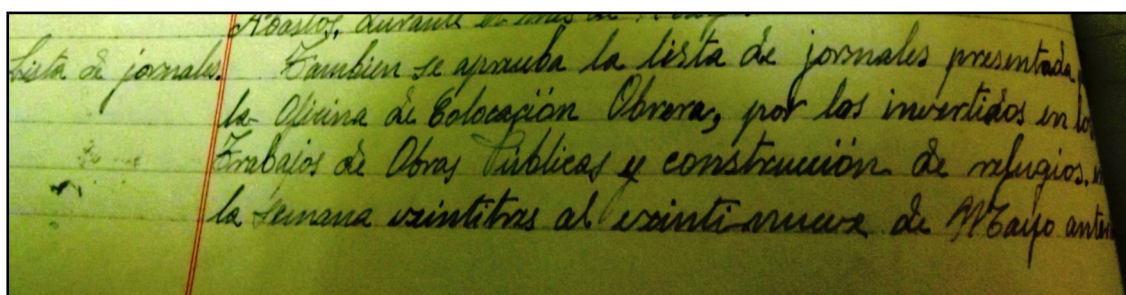 Abastos, durante el mes de
Lista de jornales. Tambien se aprueba la lista de jornales presentada
la Oficina de Colocación Obrera, por los invertidos en
Trabajos de Obras Públicas y construcción de refugios,
la semana veintitres al veintinueve de Mayo